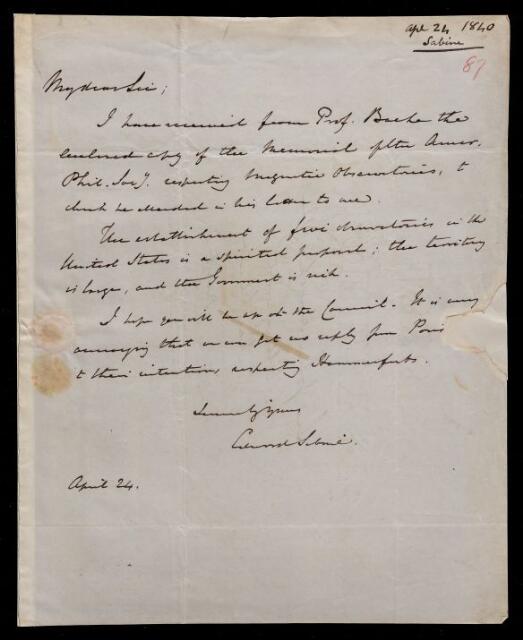 Apl 24 1840
Sabine
87
My dear Sir;
I have received from Prof. Bache the
enclosed copy of the Memorial of the Amer.
Phil. Socy. respecting Magnetic Observatories, to
which he alluded in his letter to me.
The establishment of five observatories in the
United States is a spirited proposal; the territory
is large, and the Government is rich.
I hope you will be up at the Council. It is very
annoying that we can get no reply from Paris
to their intentions respecting Hammerfest.
Sincerely yours
Edward Sabine.
April 24.